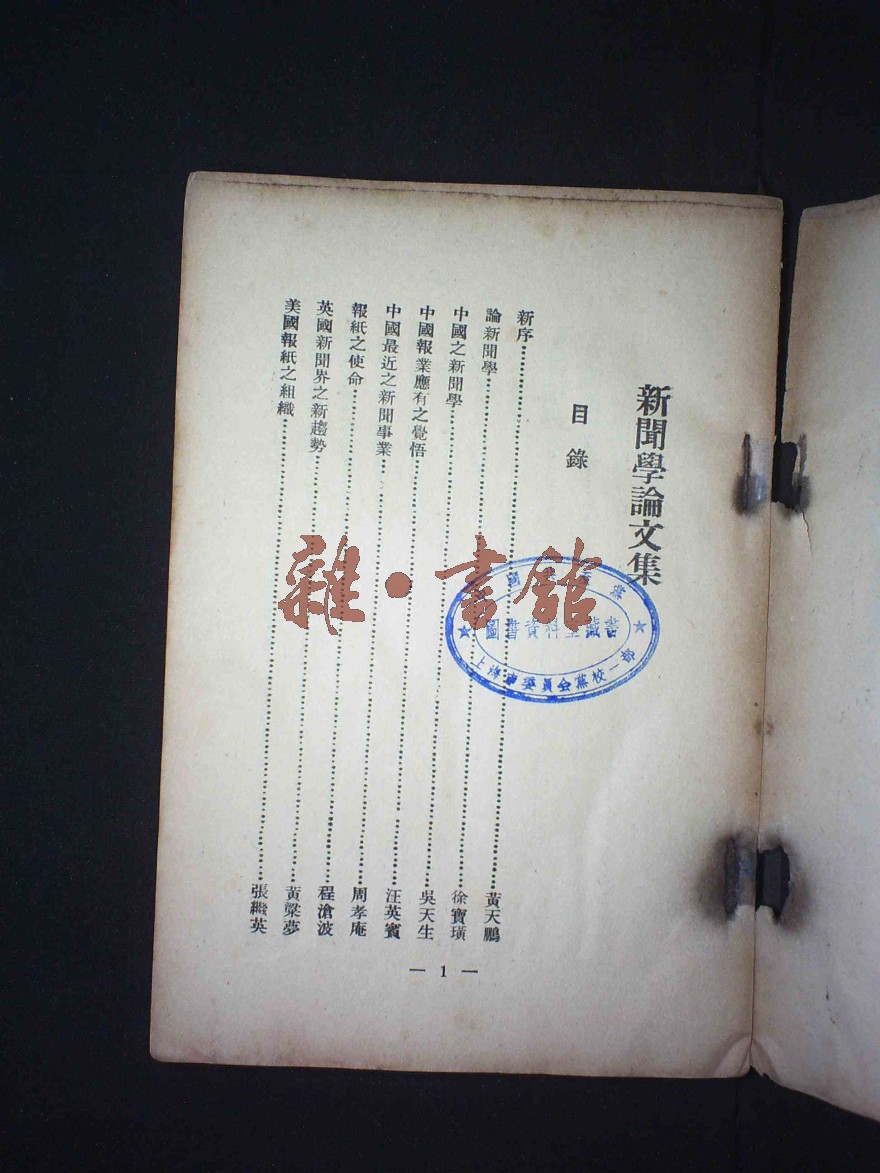 新聞學論文集
目錄
新序…………黃天鵬
論新聞學…………徐寶璜
中國之新聞學…………吳天生
中國報業應有之覺悟…………汪英賓
中國最近之新聞事業…………周孝庵
報紙之使命…………程滄波
英國新聞界之新趨勢…………黃粱夢
美國報紙之組織…………張繼英
— 1 —
圖書資料室藏書
上海市委員會黨校一部
雜·書館